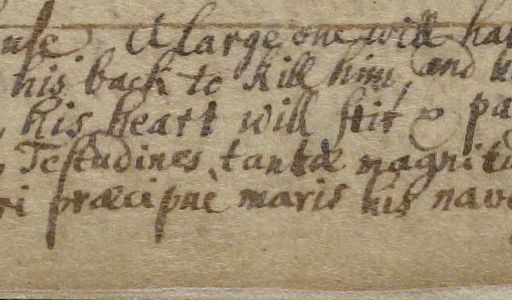 use A large one will ha
his back to kill him, and
, his heart will stir & pa
, Testudines tantæ magnitu
ri præcipuè maris his nav